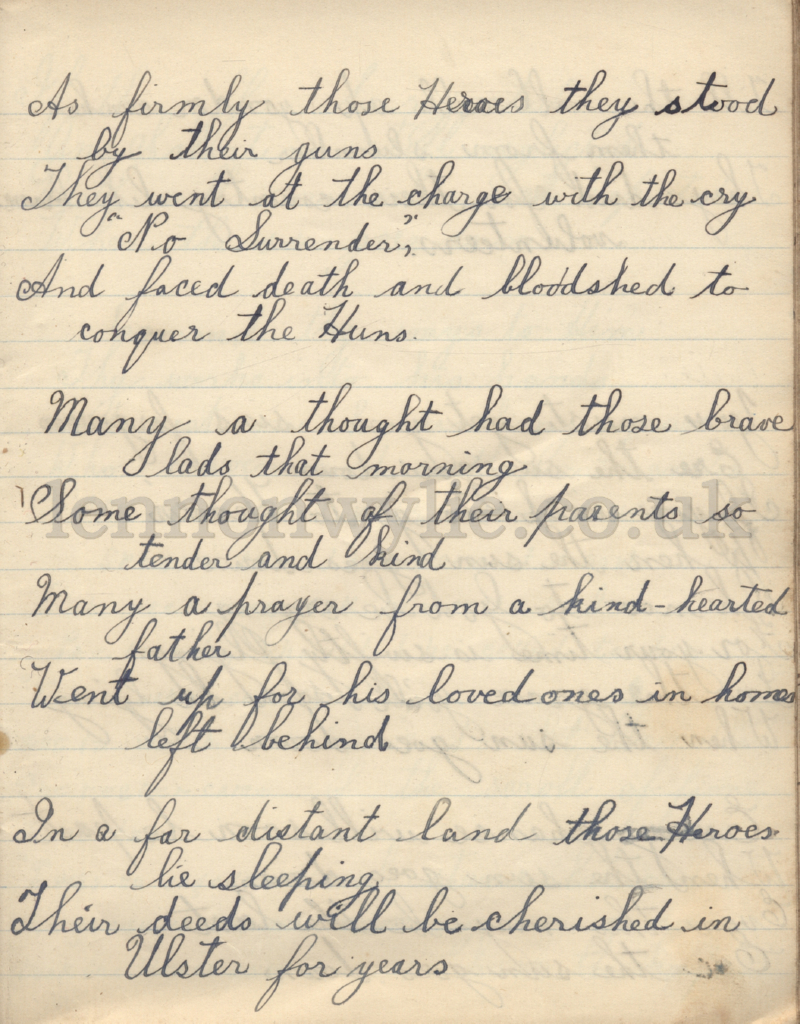 As firmly those Heroes they stood
by their guns
They went at the charge with the cry
"No Surrender",
And faced death and bloodshed to
conquer the Huns.
Many a thought had those brave
lads that morning
Some thought of their parents so
tender and kind
Many a prayer from a kind-hearted
father
Went up for his loved ones in homes
left behind
In a far distant land those Heroes
lie sleeping
Their deeds will be cherished in
Ulster for years
lennonwylie.co.uk